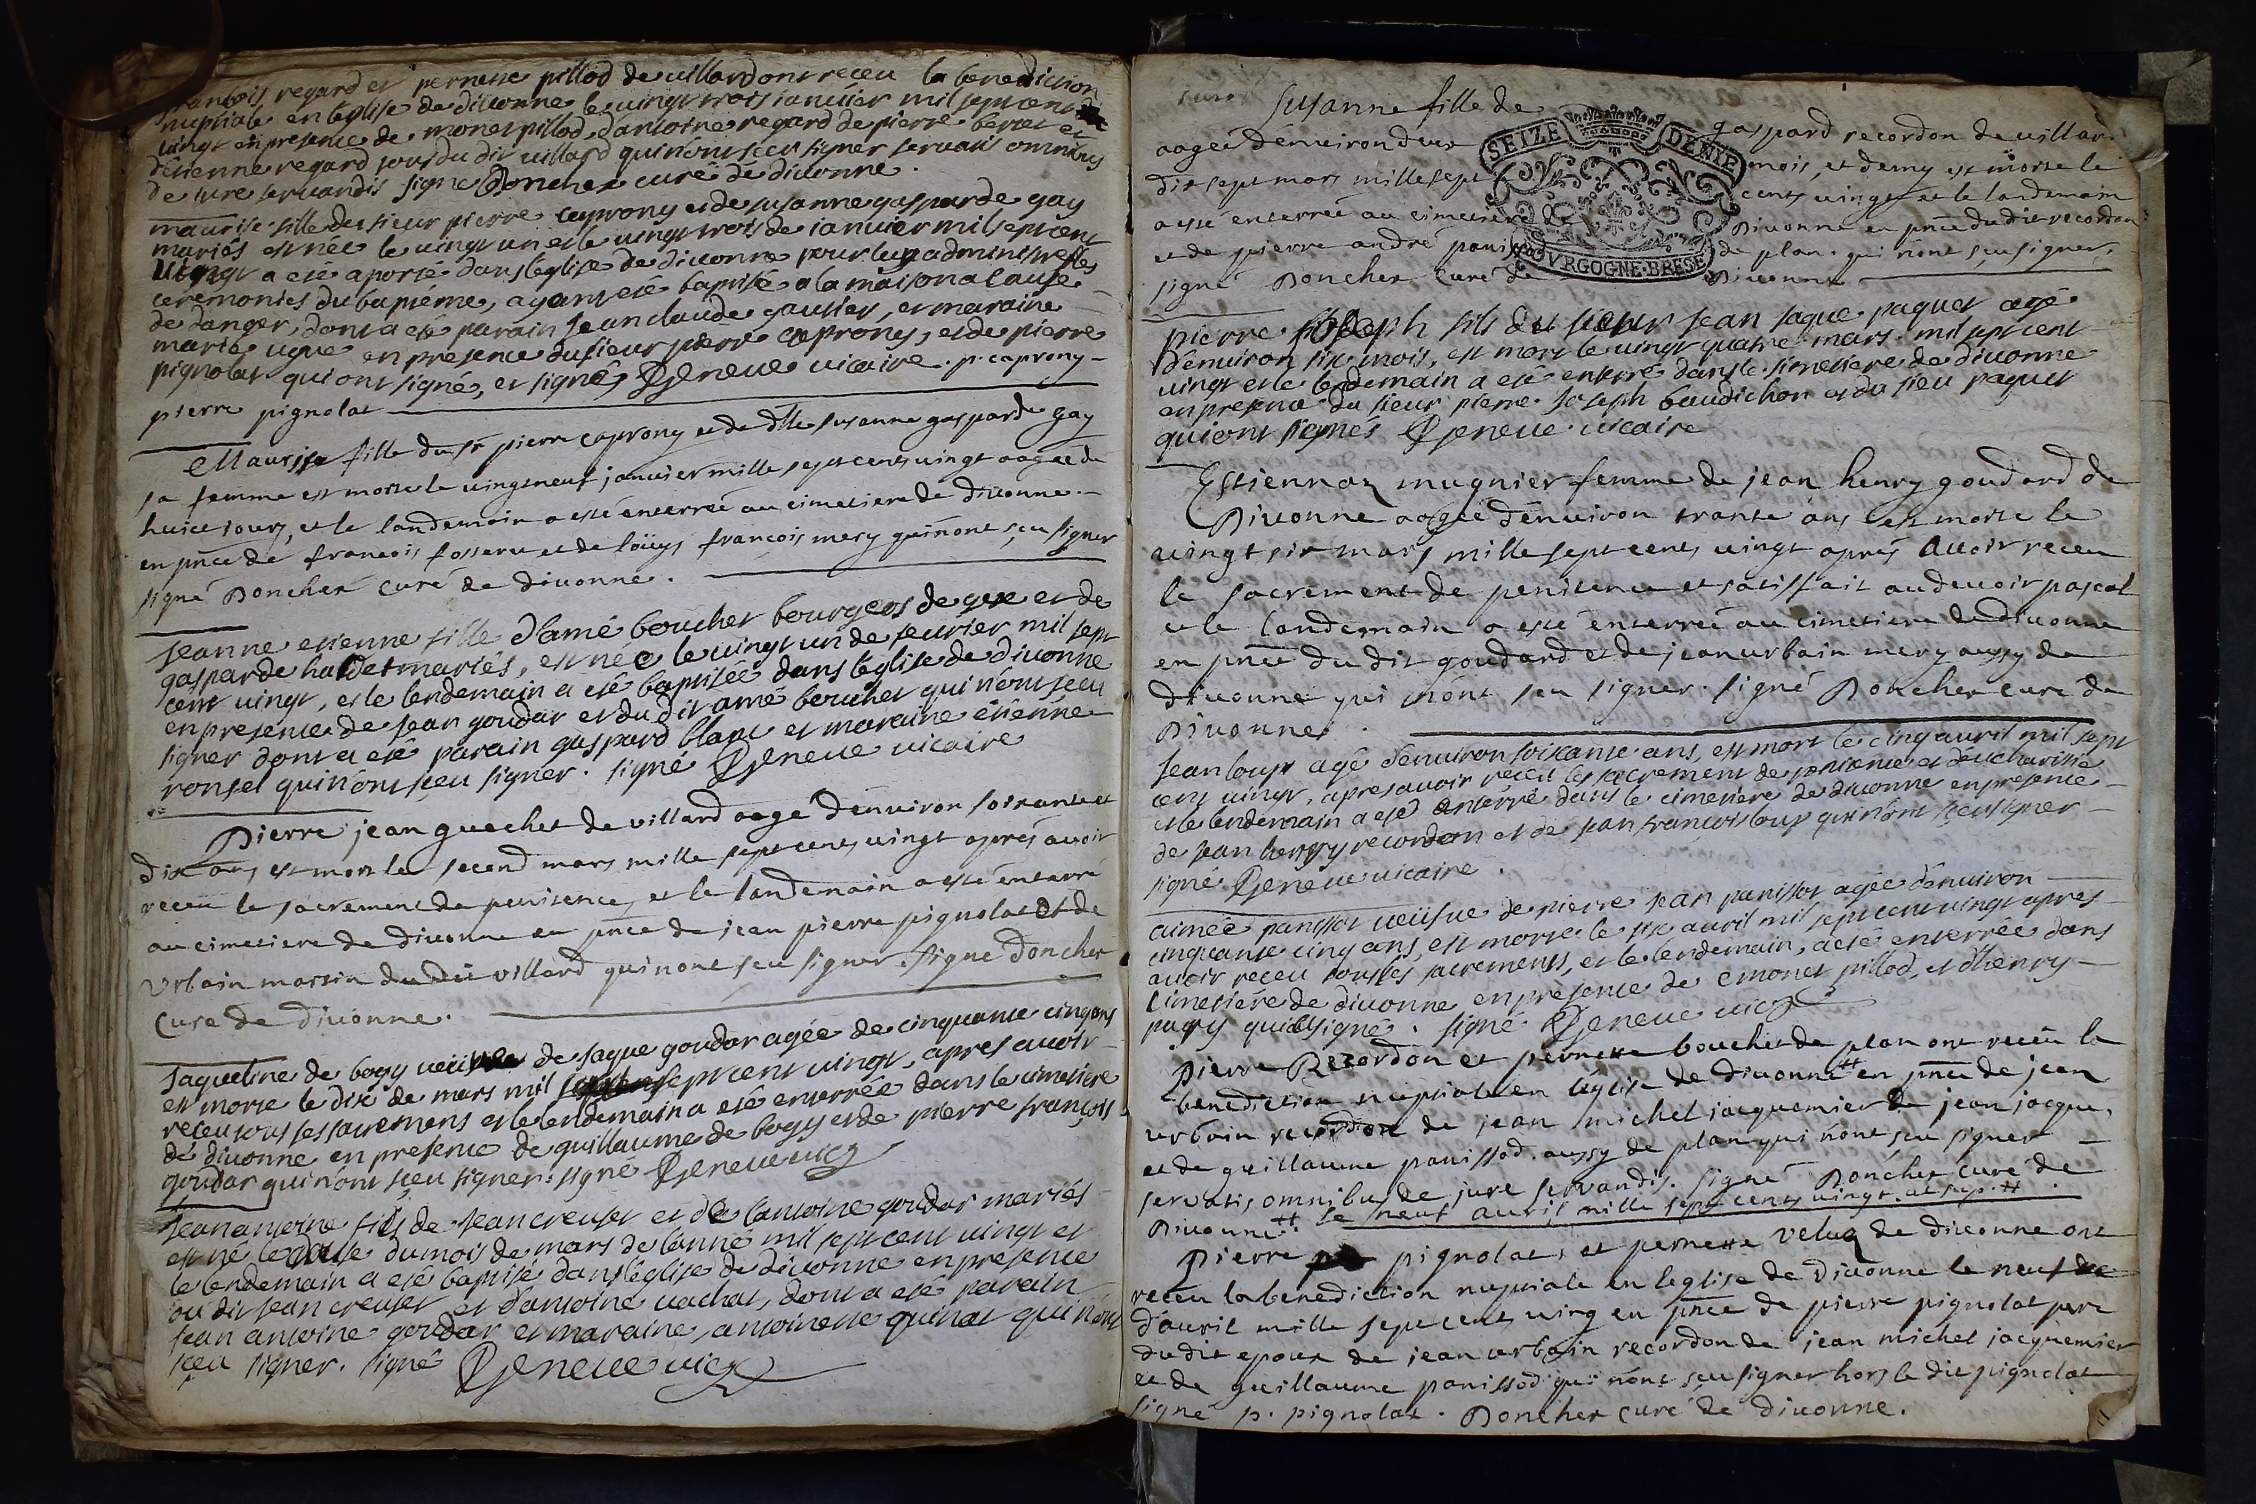 francois regard et pernette pillod de villard ont receu la benediction
nuptiale en leglise de diuonne le uingt trois ianuier mil sept cent
uingt en presence de monet pillod d'antoine regard de pierre berret et
d'etienne regard tous du dit uillard qui n'ont sceu signer seruatis omnibus
de iure seruandis signé Doncher curé de diuonne.
maurise fille du sieur pierre caprony et de susanne gasparde gay
mariés est née le uingt un et le uingt trois de ianuier mil sept cent
uingt a eté aporté dans l'eglise de diuonne pour luy administrer les
ceremonies du bapteme, ayant eté baptisé a la maison a cause
de danger, dont a eté parain jean claude gautier, et maraine
marie uque en presence du sieur pierre caprony, et de pierre
pignolat qui ont signé, et signés Dgeneue uicaire. p. caprony
pierre pignolat
Maurise fille du sr pierre caprony et de dlle susanne gasparde gay
sa femme est morte le uingtneuf januier mille sept cents uingt aagée de
huict jours, et le landemain a esté enterrée au cimetiere de diuonne
en pnce de francois fosseru et de loüys françois mery qui n'ont sçu signer
signé Doncher curé de diuonne.
jeanne etienne fille d'amé boucher bourgeos de gex et de
gasparde haldet mariés, est née le uingt un de feurier mil sept
cent uingt, et le lendemain a eté baptisée dans l'eglise de diuonne
en presence de jean goudar et du dit amé boucher qui n'ont sceu
signer dont a eté parain gaspard blanc et maraine étienne
ronsel qui n'ont sçeu signer. signé Dgeneue uicaire
Pierre jean guechet de villard aagé d'enuiron soixante et
dix ans est mort le second mars mille sept cents uingt aprés auoir
receu le sacrement de penitence, et le landemain a esté enterré
au cimetiere de diuonne en pnce de jean pierre pignolat et de
Urbain martin du dit villard qui n'ont sçu signer. signé Doncher
curé de diuonne.
jaqueline de bogy ueufue de jaque goudar agée de cinquante cinq ans
est morte le dix de mars mil sept cent uingt, apres auoir
receu tous ses sacremens et le lendemain a eté enterrée dans le cimetiere
de diuonne en presence de guillaume de bogy et de pierre françois
goudar qui n'ont sçeu signer: signé Dgeneue uicr
jean antoine fils de jean creuset et de l'antoine goudar mariés
est né le douse du mois de mars de l'anné mil sept cent uingt et
le lendemain a eté baptisé dans l'eglise de diuonne en presence
du dit jean creuset et d'antoine uachat, dont a eté parain
jean antoine goudar et maraine, antoinette quinat qui n'ont
sçeu signer. signé Dgeneue uicr
Susanne fille de gaspard recordon de uillard
aagée d'enuiron deux mois, et demy est morte le
dix sept mars mille sept cents uingt et le landemain
a esté enterrée au cimetiere de Diuonne en pnce du dit recordon
et de pierre andré panissod de plan. qui n'ont sçu signer,
signé Doncher curé de Diuonne
SEIZE DENIE
BOVRGOGNE·BRESE
pierre joseph fils du sieur jean jaque paquet agé
d'enuiron six mois, est mort le uingt quatre mars mil sept cent
uingt et le lendemain a eté enterré dans le simetiere de diuonne
en presence du sieur pierre joseph baudichon et du sieu paquet
qui ont signés Dgeneue uicaire
Estiennaz mugnier femme de jean henry goudard de
Diuonne aagée d'enuiron trante ans est morte le
uingt six mars mille sept cents uingt aprés auoir receu
le sacrement de penitence et satisfait au deuoir pascal
et le landemain a esté enterrée au cimetiere de diuonne
en pnce du dit goudard et de jean urbain mery aussy de
diuonne qui n'ont sçu signer. signé Doncher curé de
Diuonne.
jean loup agé d'enuiron soixante ans, est mort le cinq auril mil sept
cent uingt, apres auoir recut les sacrement de penitence et d'eucharistie
et le lendemain a eté enterré dans le cimetiere de diuonne en presence
de jean henry recordon et de jean francois loup qui n'ont sceu signer
signé Dgeneue uicaire.
aimée panissot ueufue de pierre jean panissot agée d'enuiron
cinquante cinq ans, est morte le six auril mil sept cent uingt apres
auoir receu tous les sacrements, et le lendemain, a eté enterrée dans
cimetiére de diuonne en presence de emonet pillod, et d'henry
pagy qui signé. signé Dgeneue uicr
Pierre Recordon et pernette boucher de plan ont receu la
benediction nuptiale en l'église de diuonne # en pnce de jean
urbain recordon de jean michel jacquemier de jean jacque,
et de guillaume panissod. aussy de plan qui n'ont sçu signer
seruatis omnibus de jure seruandis. signé Doncher curé de
Diuonne # le neuf auril mille sept cents uingt. ut sup. #
Pierre pignolat, et pernette veluz de diuonne ont
receu la benediction nuptiale en l'eglise de Diuonne le neuf de
d'auril mille sept cents uing en pnce de pierre pignolat pere
dudit epoux de jean urbain recordon de jean michel jacquemier
et de guillaume panissod qui n'ont sçu signer hors le dit pignolat
signé p. pignolat. Doncher curé de diuonne.